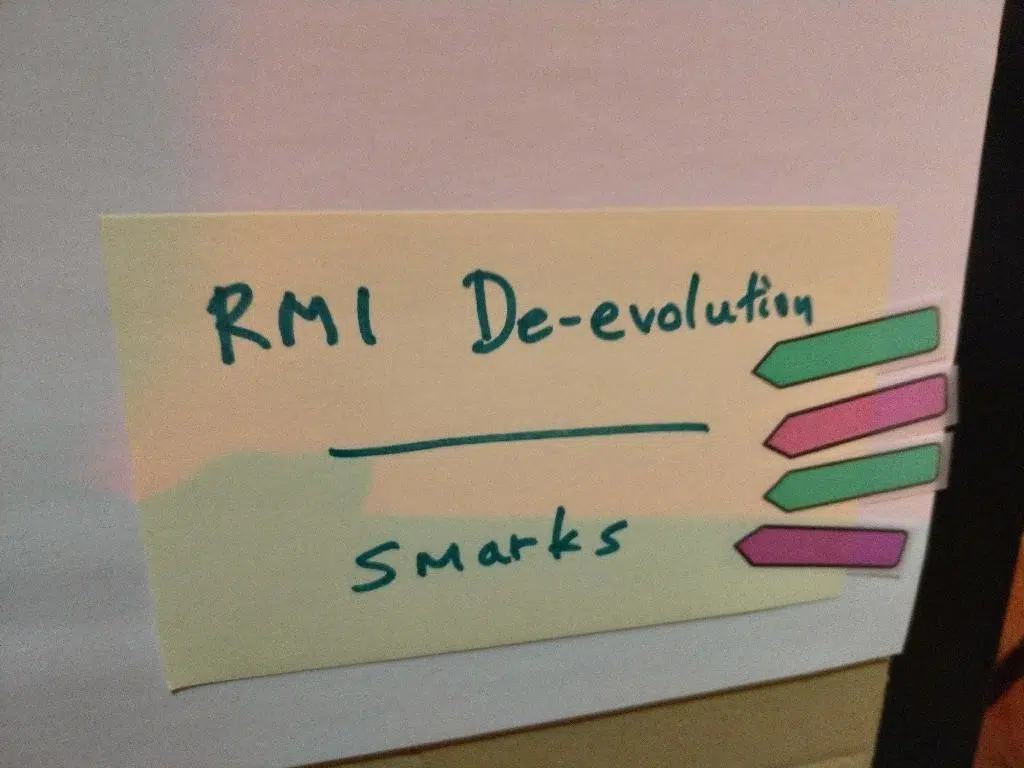 RMI De-evolution
Smarks